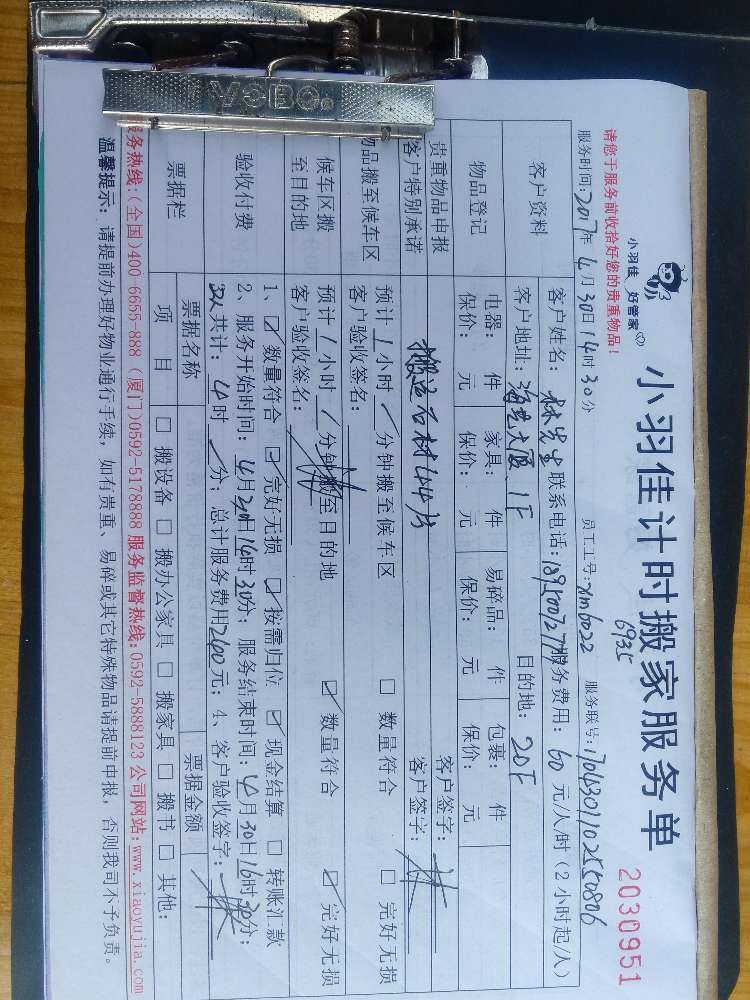 小羽佳计时搬家服务单
2030951
小羽佳 好管家
请您于服务前收拾好您的贵重物品!
6935
服务时间:2017年4月30日14时30分 员工工号:xm6022 服务联号:1704301102550806
客户资料
客户姓名:林先生 联系电话: 服务费用:60元/人/时(2小时起/人)
客户地址: 1F 目的地:20F
物品登记
电器: 件 家具: 件 易碎品: 件 包裹: 件
保价: 元 保价: 元 保价: 元 保价: 元
贵重物品申报
客户特别承诺
搬运石材44片
客户签字:
客户签字:
物品搬至候车区
预计1小时/分钟搬至候车区 □ 数量符合 □ 完好无损
客户验收签名:
候车区搬至目的地
预计1小时/分钟搬至目的地 ☑ 数量符合 ☑ 完好无损
客户验收签名:
验收付费
1、☑ 数量符合 ☑ 完好无损 ☑ 按需归位 ☑ 现金结算 □ 转账汇款
2、服务开始时间:4月 日14时30分;服务结束时间:4月30日16时30分;
共计: 时/分;总计服务费用 元;4、客户验收签字:
票据栏
票据名称 票据金额
项 目 □ 搬设备 □ 搬办公家具 □ 搬家具 □ 搬书 □ 其他:
服务热线:(全国)400 6655-888 (厦门)0592-5178888 服务监督热线:0592-5888123 公司网站:www.xiaoyujia.com
温馨提示: 请提前办理好物业通行手续,如有贵重、易碎或其它特殊物品请提前申报,否则我司不予负责。